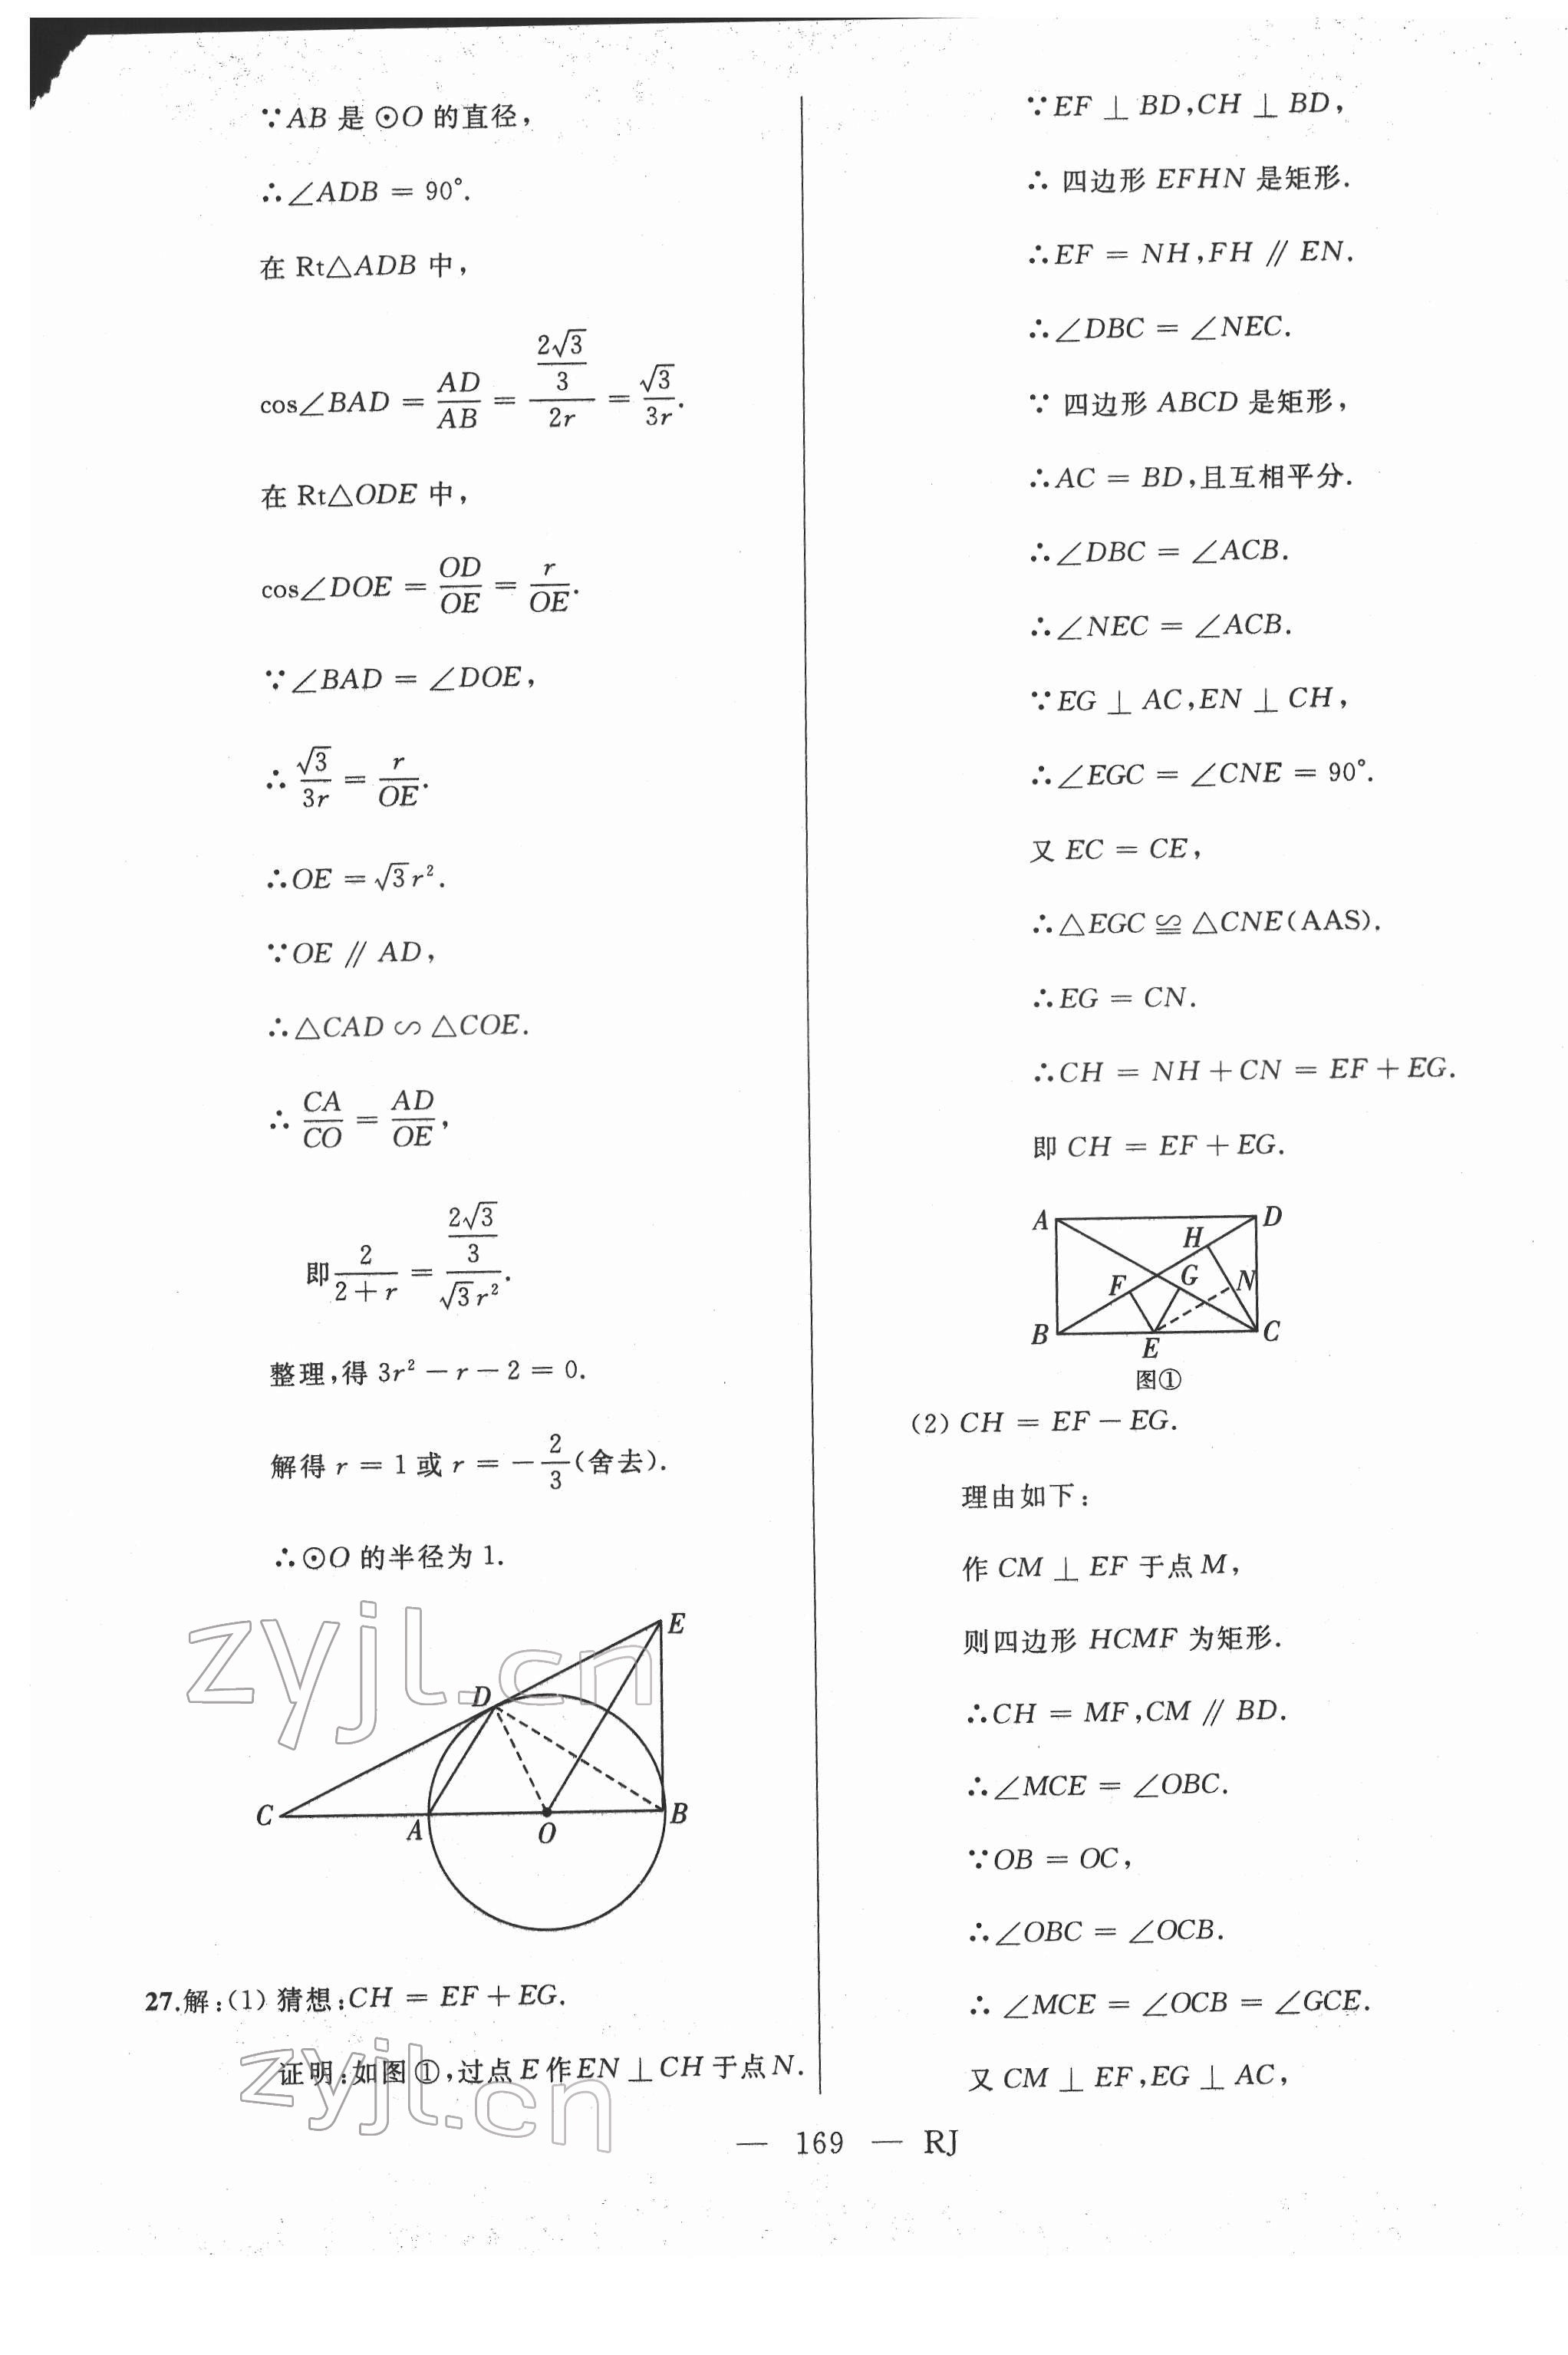 ∵AB 是 ⊙O 的直径，
∴∠ADB = 90°.
在 Rt△ADB 中，
cos∠BAD = AD/AB = (2√3/3)/(2r) = √3/(3r).
在 Rt△ODE 中，
cos∠DOE = OD/OE = r/OE.
∵∠BAD = ∠DOE，
∴ √3/(3r) = r/OE.
∴OE = √3r².
∵OE // AD，
∴△CAD ∽ △COE.
∴ CA/CO = AD/OE，
即 2/(2+r) = (2√3/3)/(√3r²).
整理，得 3r² − r − 2 = 0.
解得 r = 1 或 r = −2/3 (舍去).
∴⊙O 的半径为 1.
E
D
C
A
O
B
27.解：(1) 猜想：CH = EF + EG.
证明：如图①，过点 E 作 EN ⊥ CH 于点 N.
∵EF ⊥ BD，CH ⊥ BD，
∴ 四边形 EFHN 是矩形.
∴EF = NH，FH // EN.
∴∠DBC = ∠NEC.
∵ 四边形 ABCD 是矩形，
∴AC = BD，且互相平分.
∴∠DBC = ∠ACB.
∴∠NEC = ∠ACB.
∵EG ⊥ AC，EN ⊥ CH，
∴∠EGC = ∠CNE = 90°.
又 EC = CE，
∴△EGC ≌ △CNE(AAS).
∴EG = CN.
∴CH = NH + CN = EF + EG.
即 CH = EF + EG.
A
D
H
F
G
N
B
E
C
图①
(2) CH = EF − EG.
理由如下：
作 CM ⊥ EF 于点 M，
则四边形 HCMF 为矩形.
∴CH = MF，CM // BD.
∴∠MCE = ∠OBC.
∵OB = OC，
∴∠OBC = ∠OCB.
∴ ∠MCE = ∠OCB = ∠GCE.
又 CM ⊥ EF，EG ⊥ AC，
— 169 — RJ
zyjl.cn
zyjl.cn